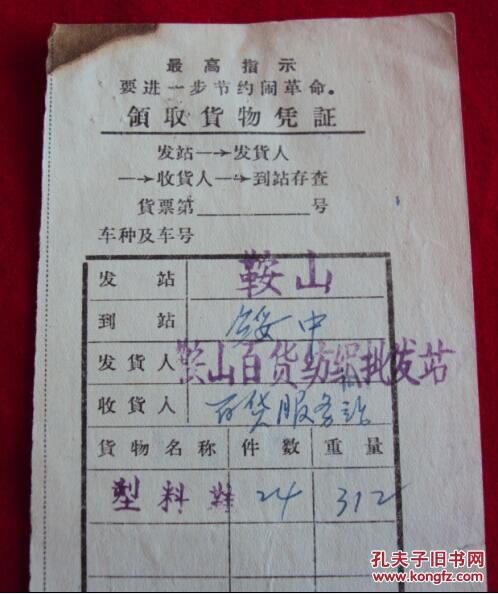 最高指示
要进一步节约闹革命。
領取貨物凭証
发站→发貨人
→收貨人→到站存查
貨票第________号
车种及车号
发站 鞍山
到站 绥中
发貨人 鞍山百货纺织批发站
收貨人 百货服务站
貨物名称 件数 重量
塑料鞋 24 312
孔夫子旧书网
www.kongfz.com